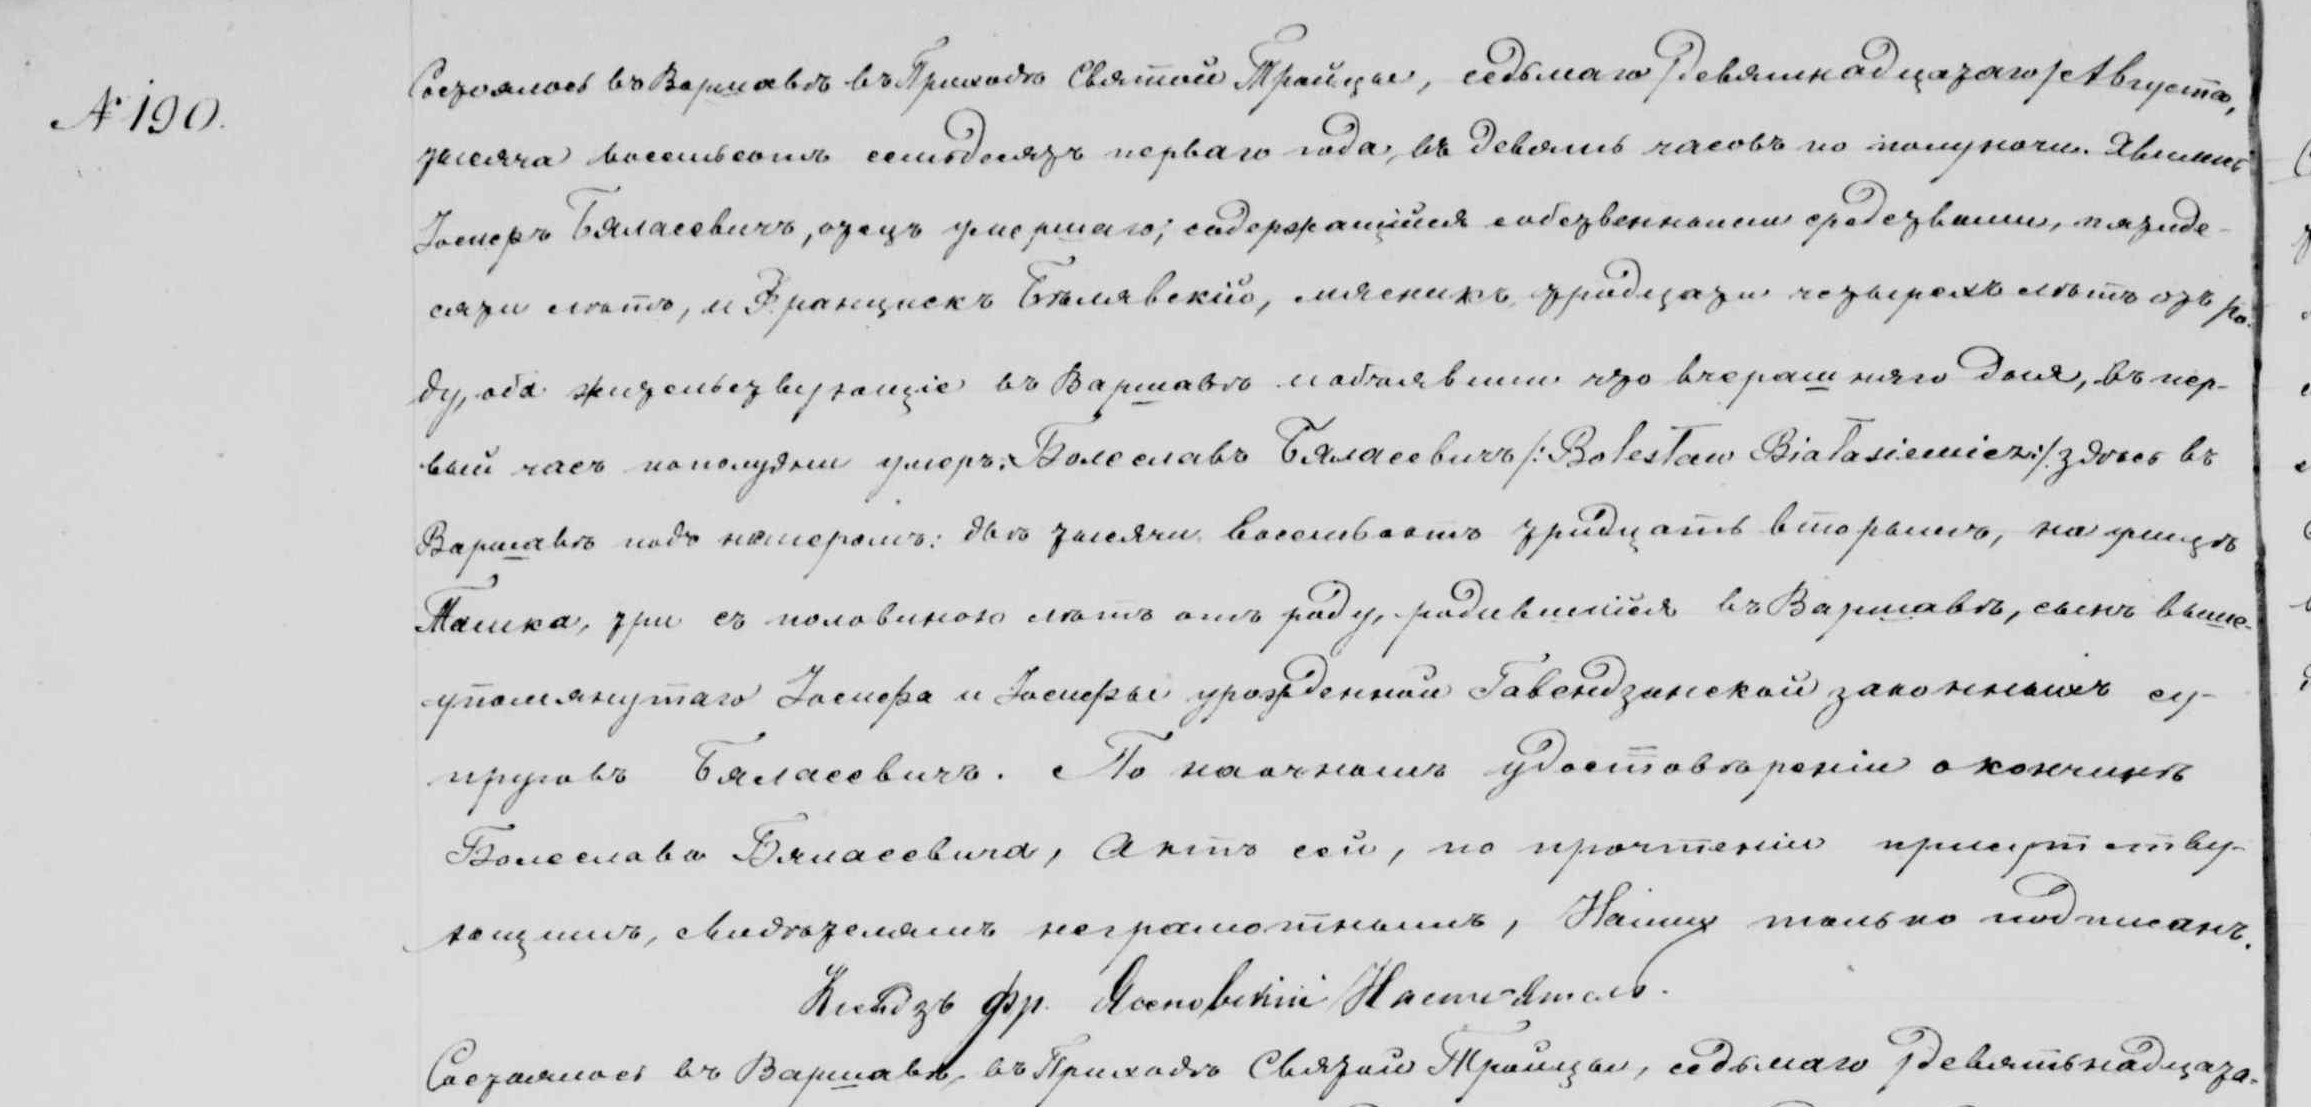 № 190.
Состоялось въ Варшавѣ въ Приходѣ Святой Тройцы, седьмаго /девятнадцатаго/ Августа,
тысяча восемьсотъ семьдесятъ перваго года, въ девять часовъ по полуночи. Явились
Іосифъ Бяласевичъ, отецъ умершаго; содержащійся собственными средствами, пятиде-
сяти лѣтъ, и Францискъ Бѣлявскій, мясникъ, тридцати четырехъ лѣтъ отъ ро-
ду, оба жительствующіе въ Варшавѣ и объявили что вчерашняго дня, въ пер-
вый часъ пополудни умеръ: Болеславъ Бяласевичъ /:Bolesław Białasiewicz:/ здѣсь въ
Варшавѣ подъ номеромъ: двѣ тысячи восемьсотъ тридцать вторымъ, на улицѣ
Тамка, три съ половиною лѣтъ отъ роду, родившійся въ Варшавѣ, сынъ выше-
упомянутаго Іосифа и Іосифы урожденной Гавендзинской законныхъ су-
пруговъ Бяласевичъ. По наочномъ удостовѣреніи о кончинѣ
Болеслава Бяласевича, Актъ сей, по прочтеніи присутству-
ющимъ, свидѣтелямъ неграмотнымъ, Нами только подписанъ.
Ксендзъ Фр. Ясеновскій Настоятель.
Состоялось въ Варшавѣ, въ Приходѣ Святой Тройцы, седьмаго /девятьнадцата-